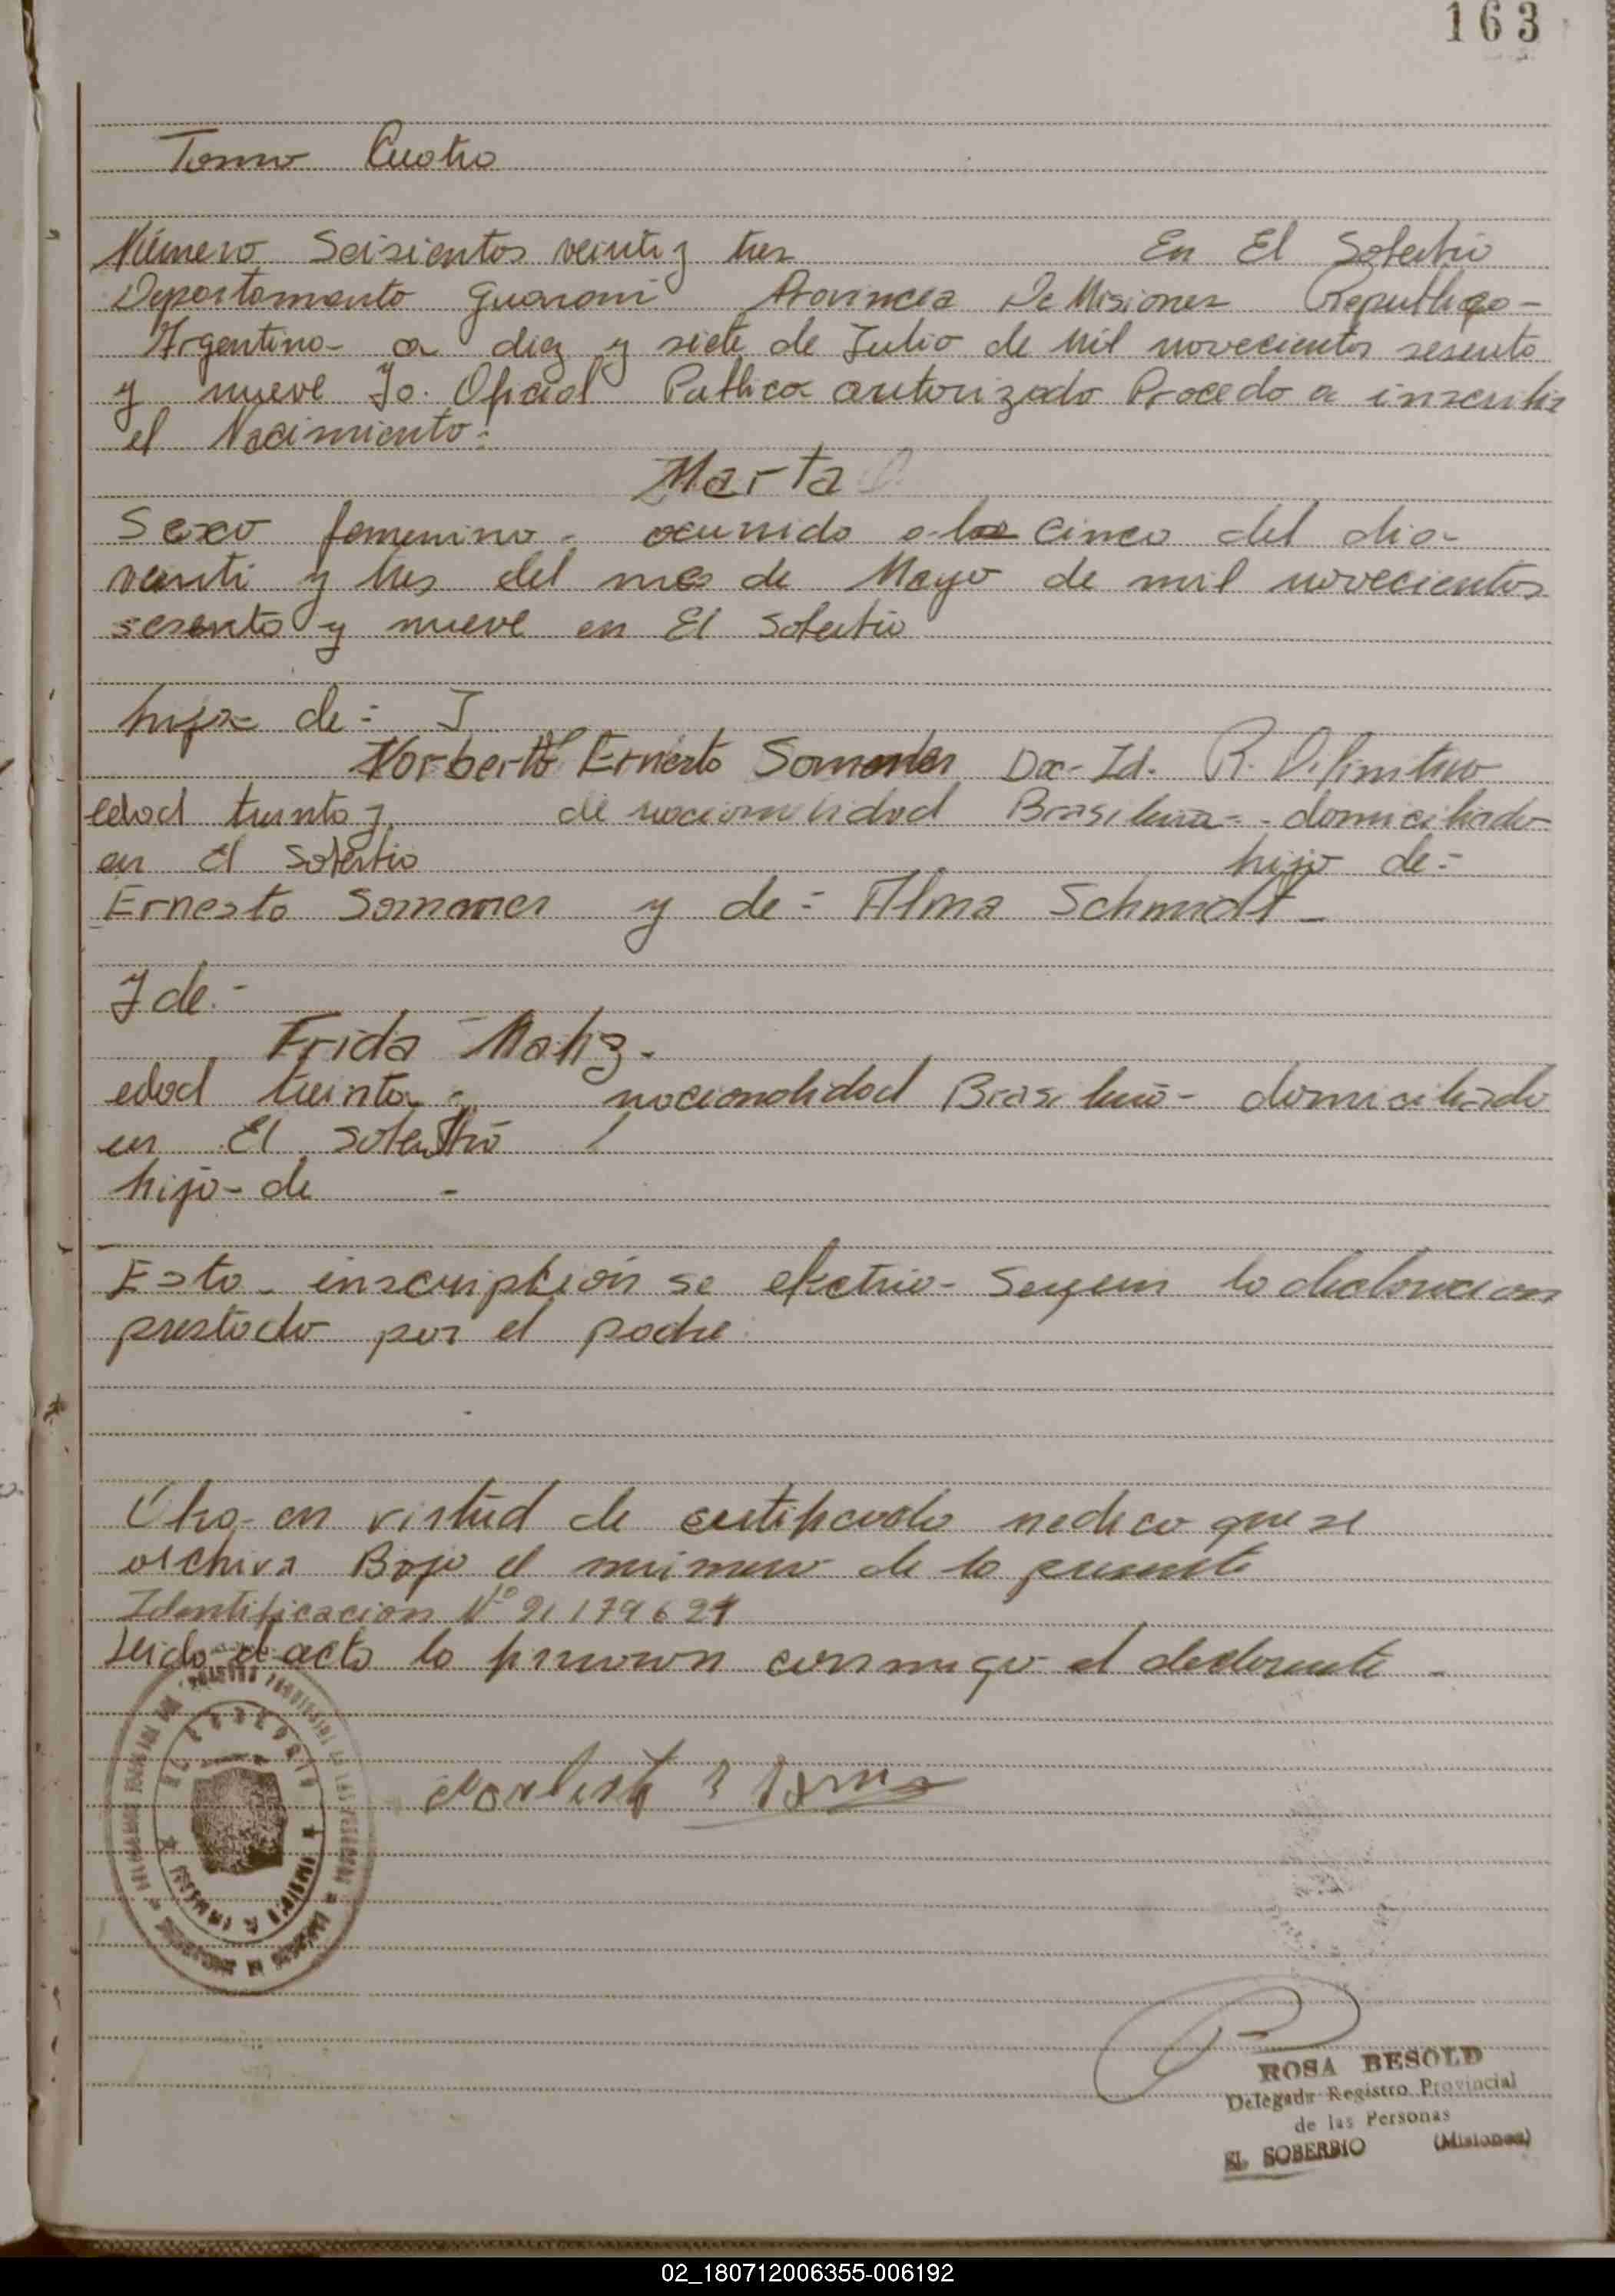 163
Tomo Cuatro
Número Seisientos veinti y tres En El Soberbio
Departamento Guarani Provincia De Misiones Republica-
Argentina- a diez y siete de Julio de Mil novecientos sesenta
y nueve Yo. Oficial Publica autorizado Procedo a inscribir
el Nacimiento:
Marta
Sexo femenino - ocurrido a las cinco del dia-
veinti y tres del mes de Mayo de mil novecientos
sesenta y nueve en El Soberbio
hija de:
Norberto Ernesto Sommer Doc- Id. R. Difinitivo
edad treinta y de nacionalidad Brasilera- domiciliado
en El Soberbio hijo de:
Ernesto Sommer y de: Alma Schmidt -
Y de.-
Frida
edad treinta nacionalidad Brasilera- domiciliado
en El Soberbio
hijo- de -
Esta inscripción se efectuo- Segun la declaracion
prestada por el padre
en virtud de certificado medico que se
archiva Bajo el número de la presente
Identificacion N°
Leido el acta la firmaron conmigo el declarante -
ROSA BESOLD
Delegada Registro Provincial
de las Personas
EL SOBERBIO (Misiones)
02_180712006355-006192